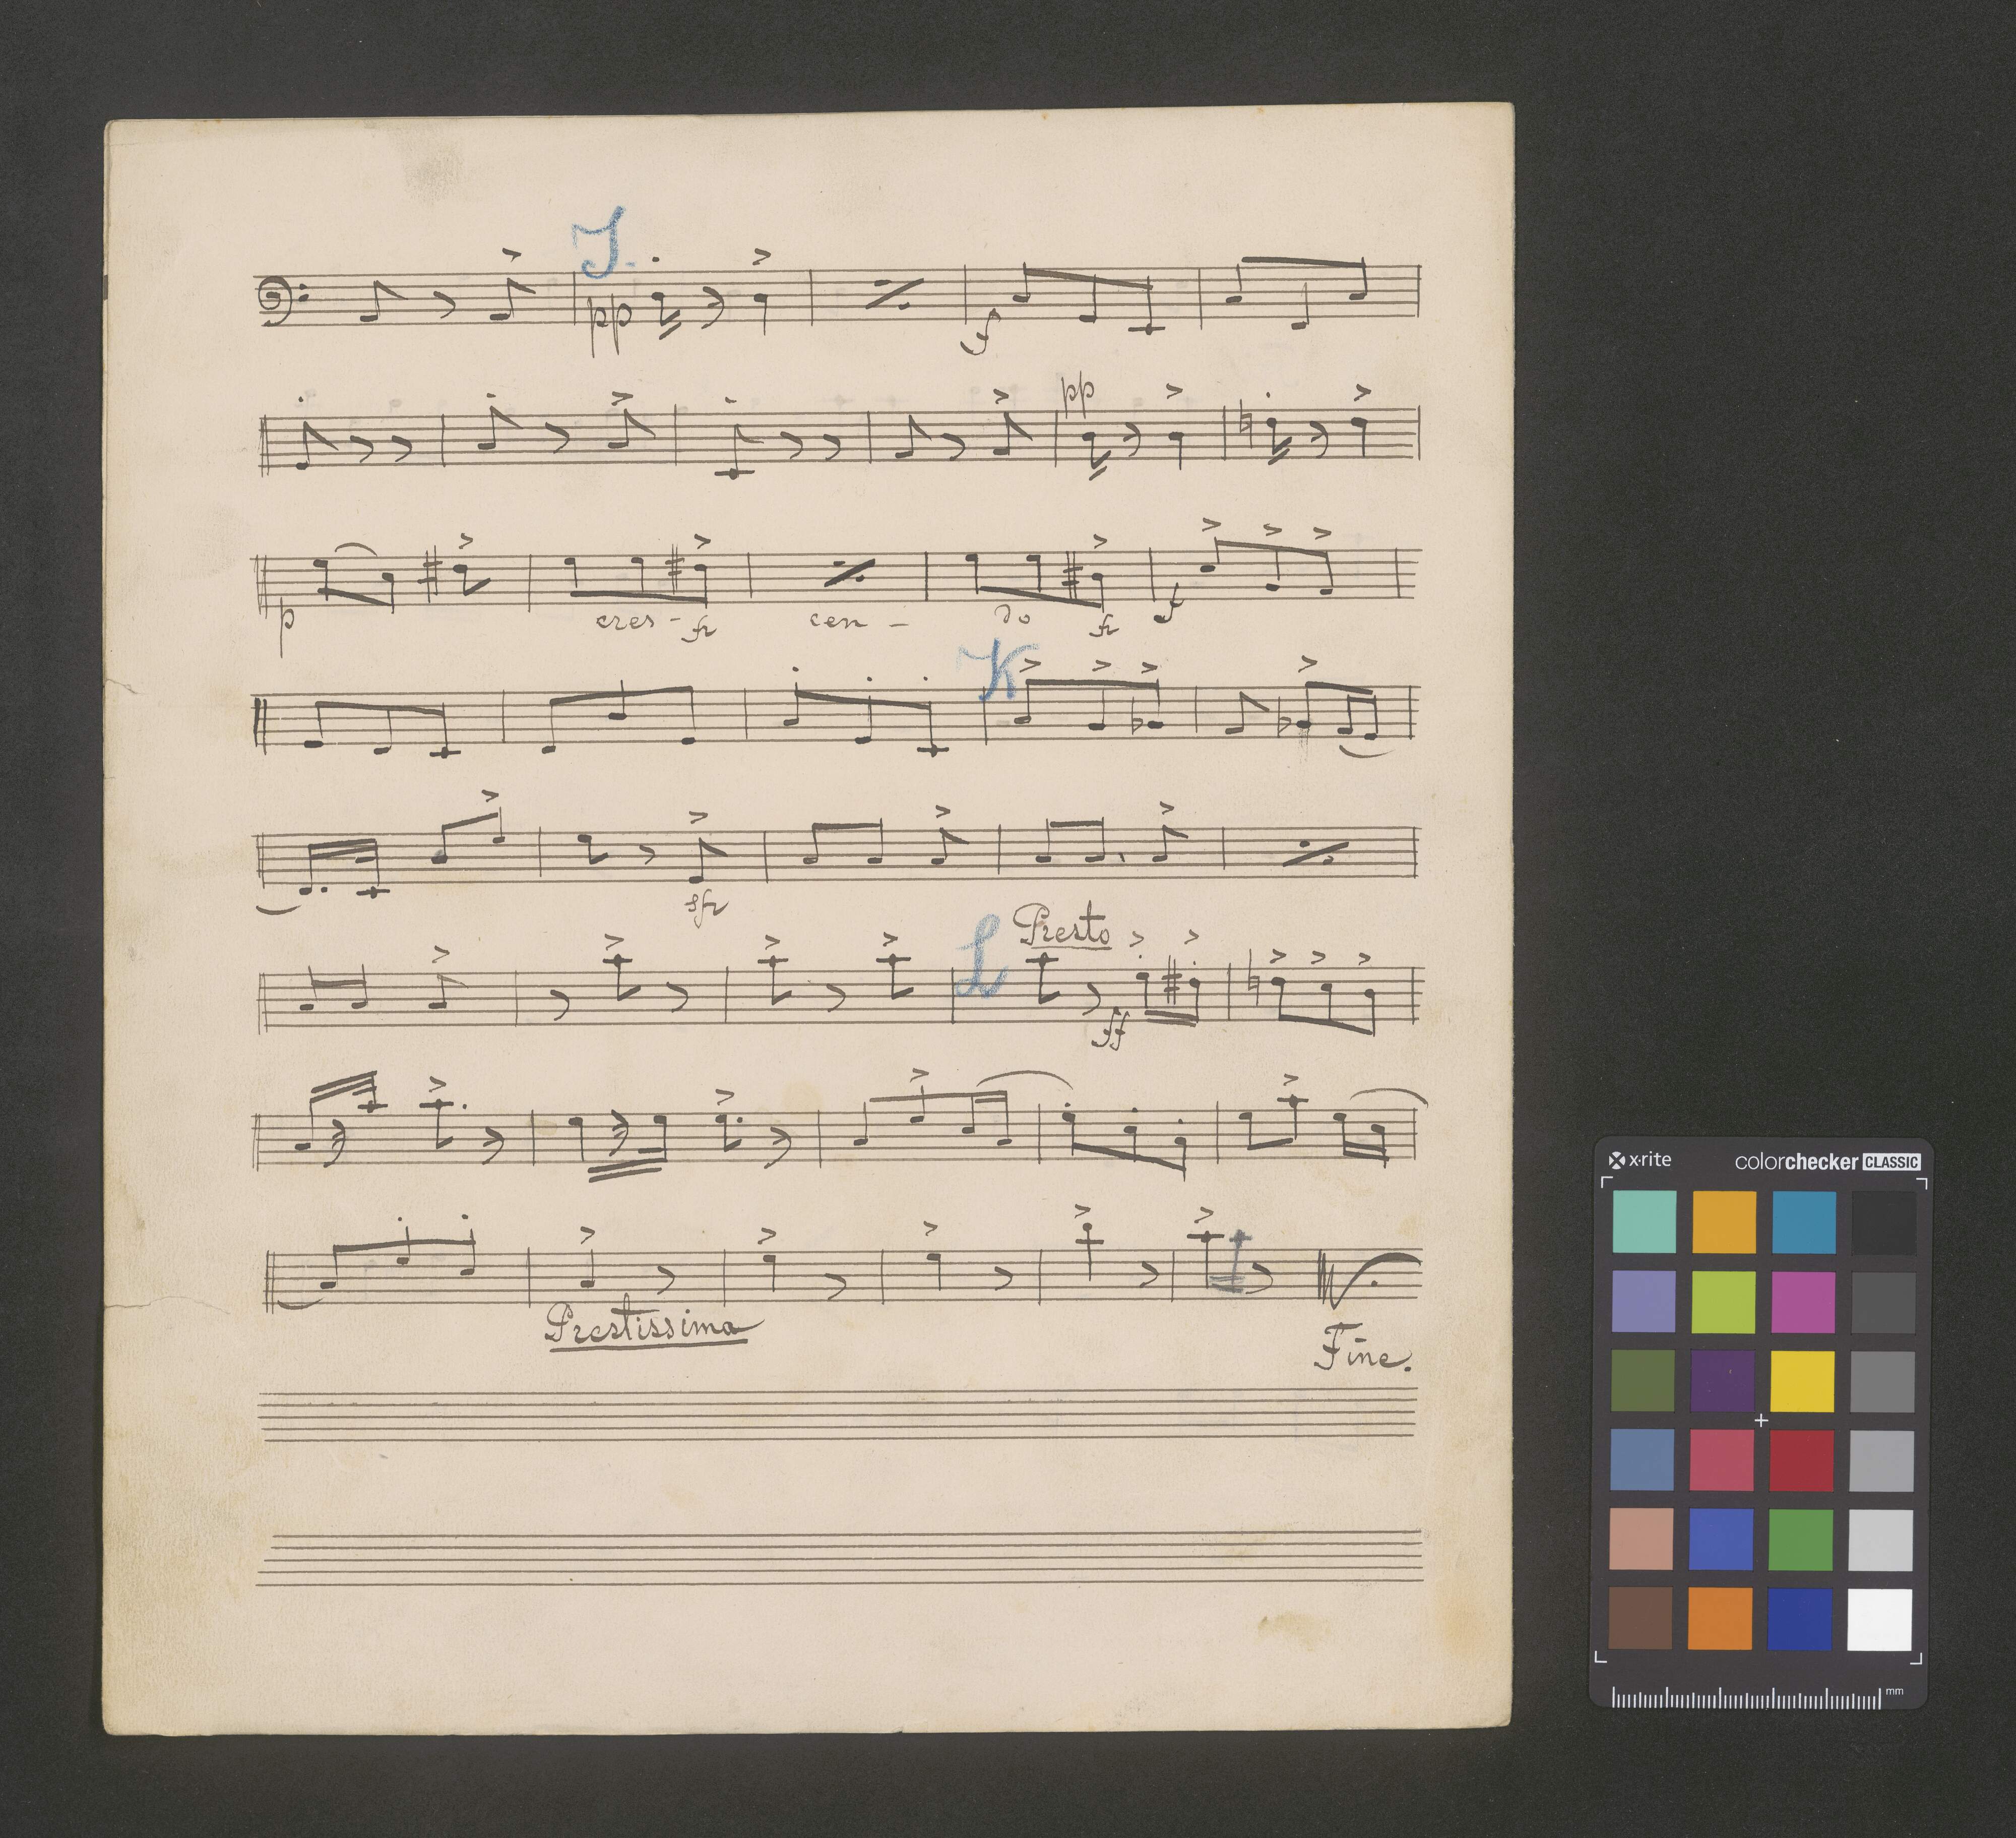 J.
pp
f
pp
p cres - fz cen - do fz f
K
sfz
L Presto
ff
Prestissimo
Fine.
x·rite colorchecker CLASSIC
mm